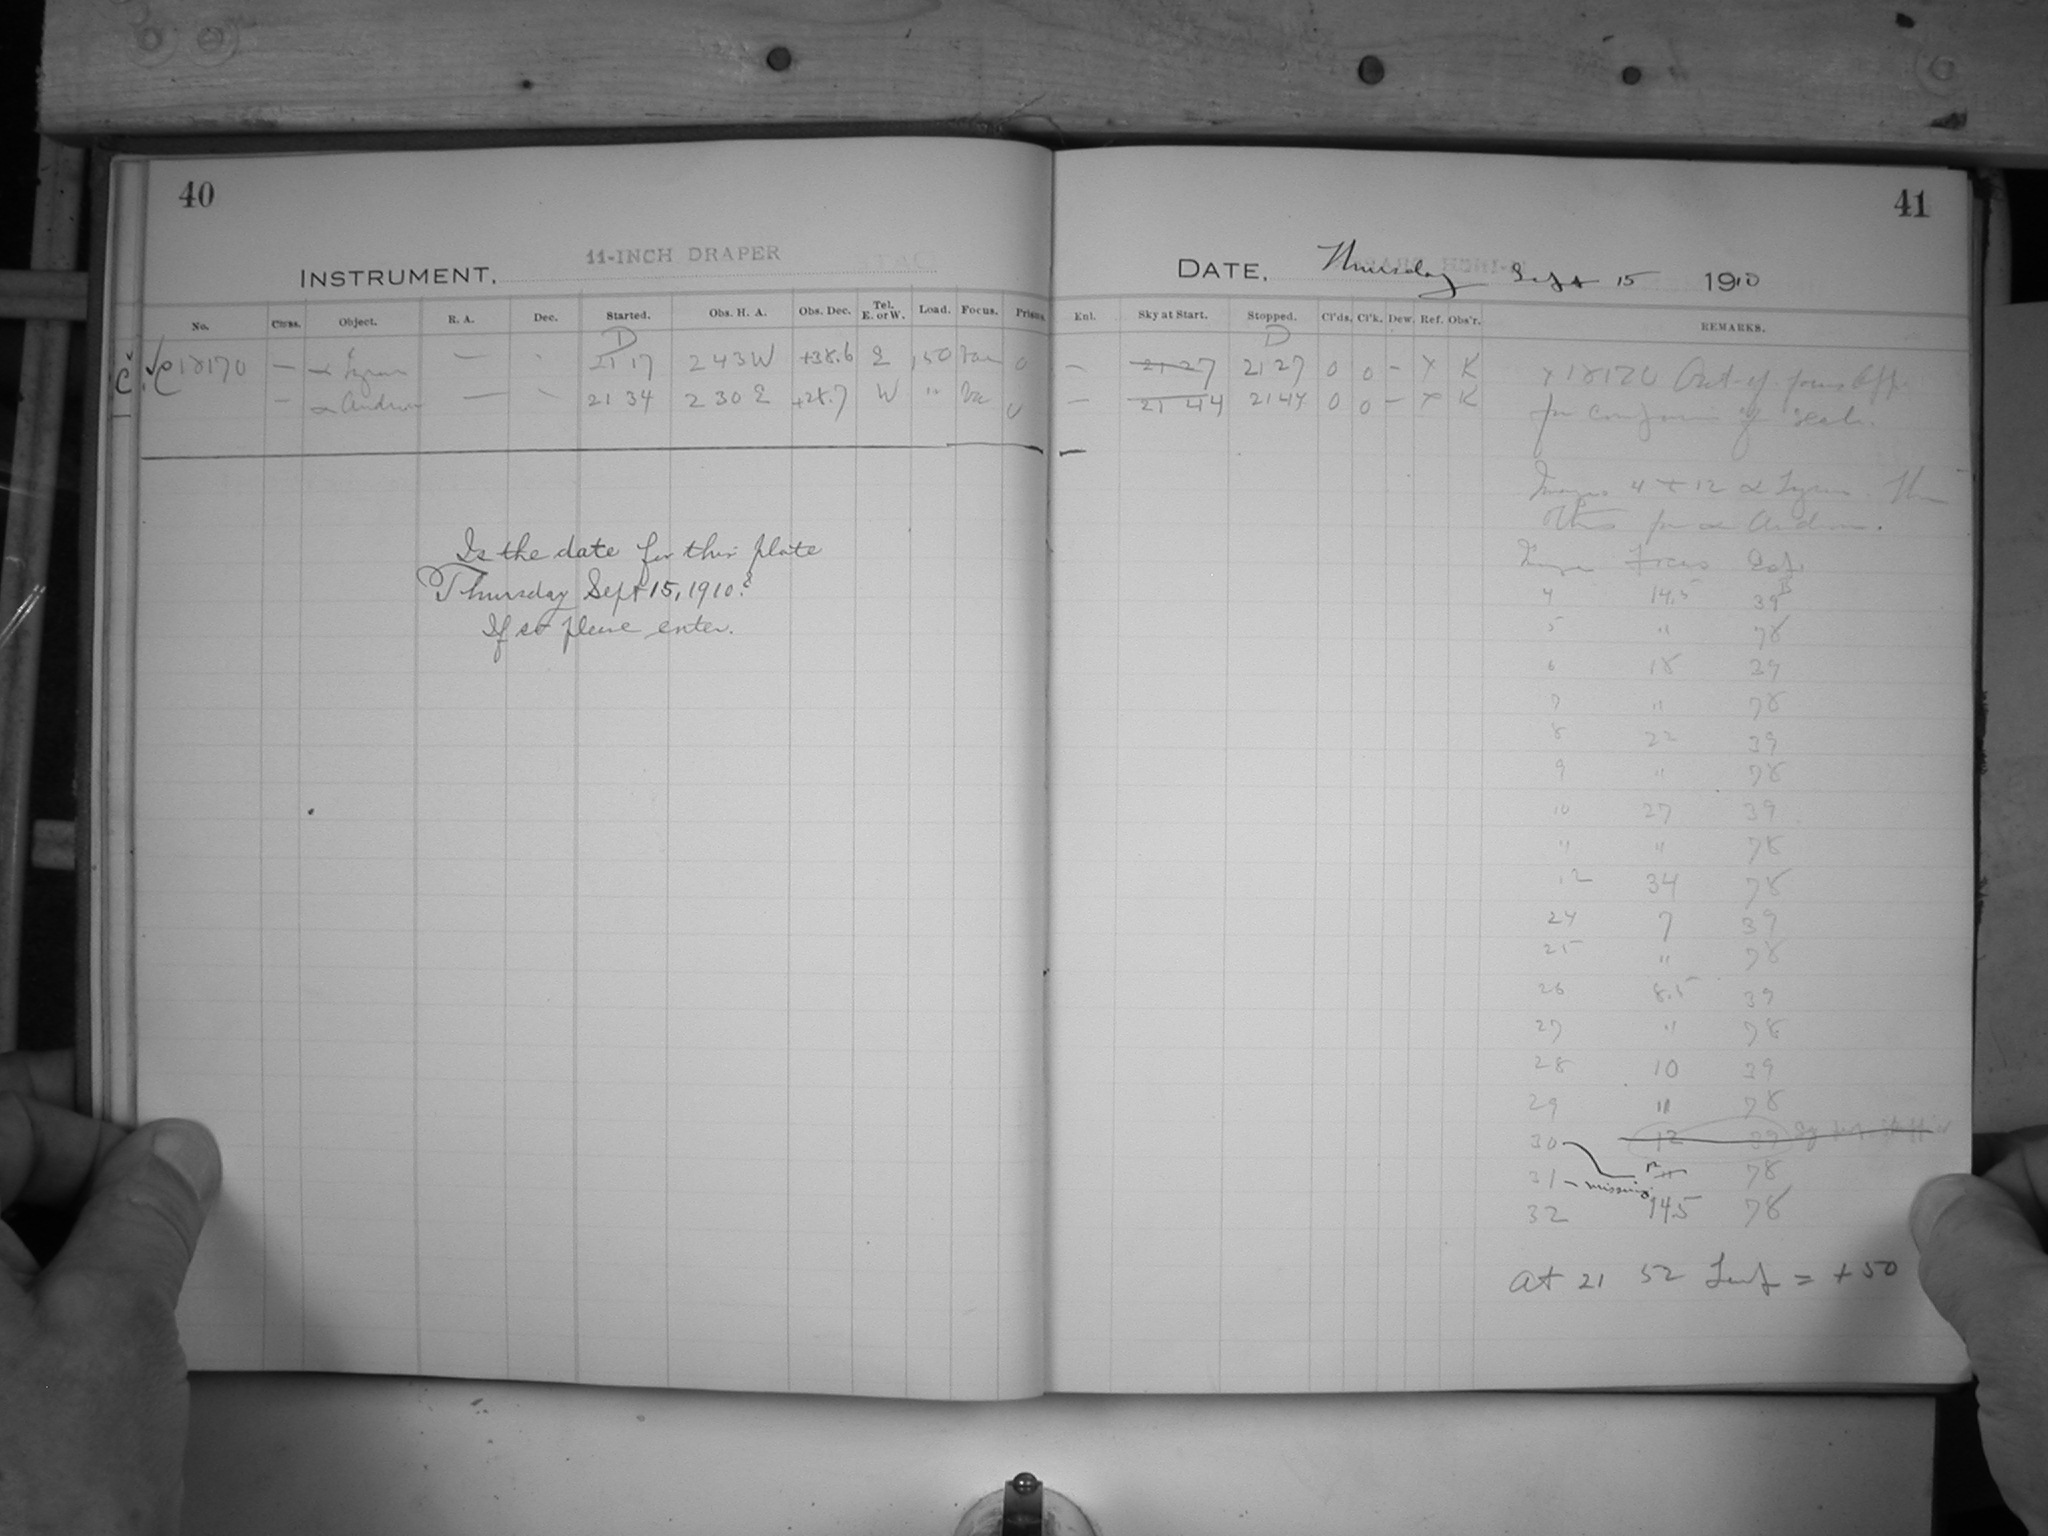 40
11-INCH DRAPER
INSTRUMENT.
No. Object. R. A. Dec. Started. Obs. H. A. Obs. Dec. Tel. E. or W. Load. Focus.
C 18170 — α Lyrae — - 21 17 2 43 W +38.6 E ,50 0
— α Androm — - 21 34 2 30 E +28.7 W " 0
Is the date for this plate
Thursday Sept 15, 1910?
If so please enter.
41
DATE. Thursday Sept 15 1910
Enl. Sky at Start. Stopped. Cl'ds. Cl'k. Dew. Ref. Obs'r. REMARKS.
D
— 21 27 21 27 0 0 — x K
— 21 44 21 44 0 0 — x K
x 18170 Out of focus
for of scale.
Images 4 to 12 α Lyrae. The
α Androm.
Image Focus
4 14.5 39
5 " 78
6 18 39
7 " 78
8 22 39
9 " 78
10 27 39
11 " 78
12 34 78
24 7 39
25 " 78
26 8.5 39
27 " 78
28 10 39
29 " 78
30 12 39
31 - missing 12 78
32 14.5 78
At 21 52 Temp = +50